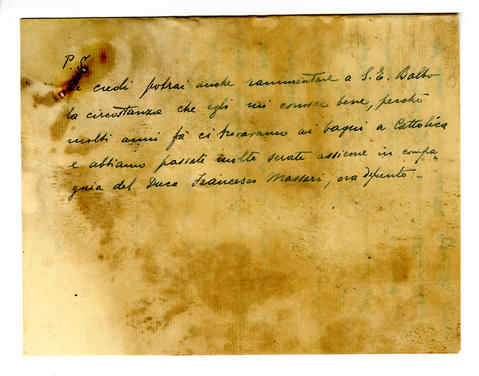 P.S.
Se credi potrai anche rammentare a S. E. Balbo
la circostanza che egli mi conosce bene, perchè
molti anni fà ci trovavamo ai bagni a Cattolica
e abbiamo passate molte serate assieme in compa
gnia del Duca Francesco Massari, ora defunto. –